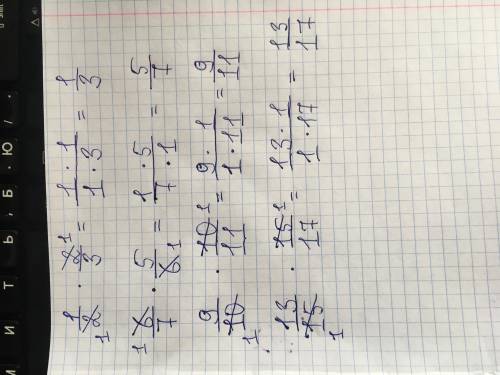 1/2 · 2/3 = 1 · 1 / 1 · 3 = 1/3
1 1
6/7 · 5/6 = 1 · 5 / 7 · 1 = 5/7
1 1
9/10 · 10/11 = 9 · 1 / 1 · 11 = 9/11
1 1
13/15 · 15/17 = 13 · 1 / 1 · 17 = 13/17
1 1
И Т Ь , Б . Ю / .